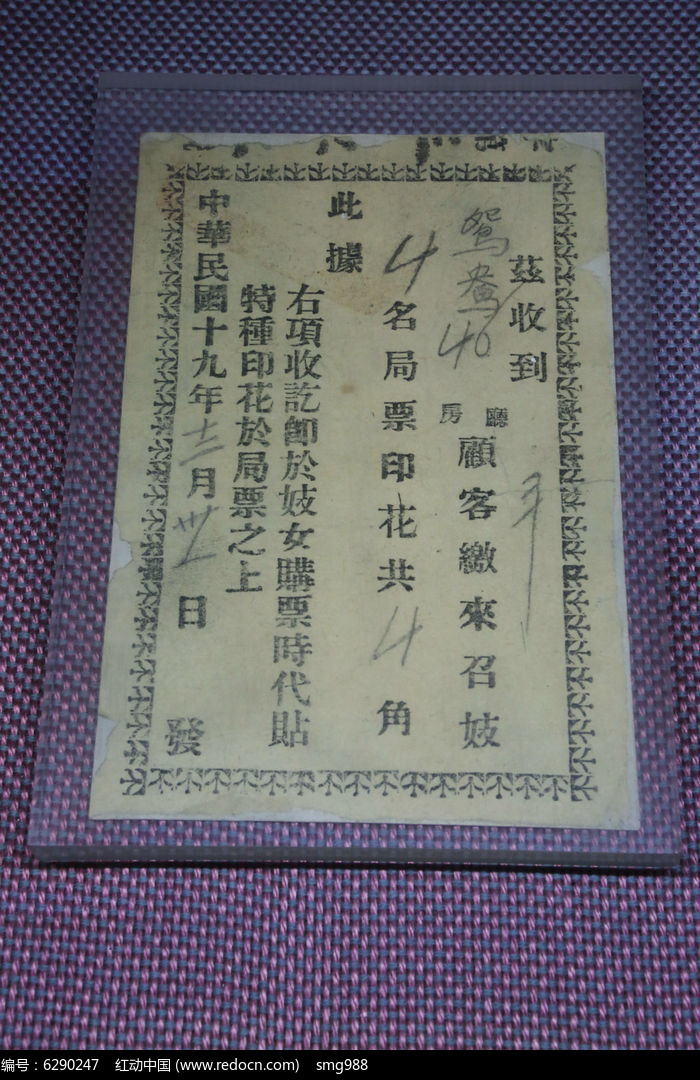 茲收到
鴛鴦40
廳
房
顧客繳來召妓
4名局票印花共4角
此據
右項收訖卽於妓女購票時代貼
特種印花於局票之上
中華民國十九年十二月卅一日發
编号：6290247 红动中国 (www.redocn.com) smg988